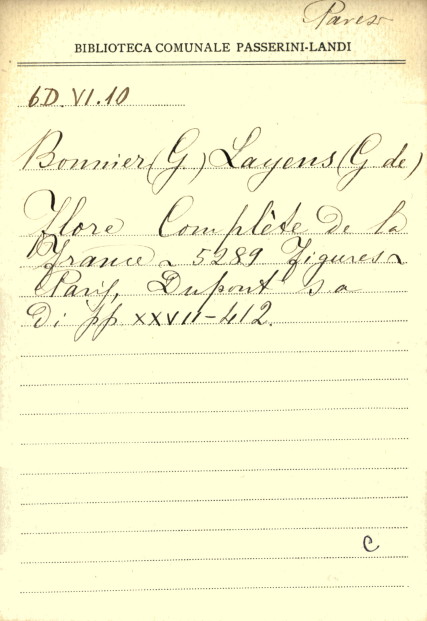 BIBLIOTECA COMUNALE PASSERINI-LANDI
6D.VI.10
Bonnier (G) Layens (G de)
Flore Complète de la
France ~ 5289 Figures ~
Paris, Dupont s a
Di pp XXVII-412.
C